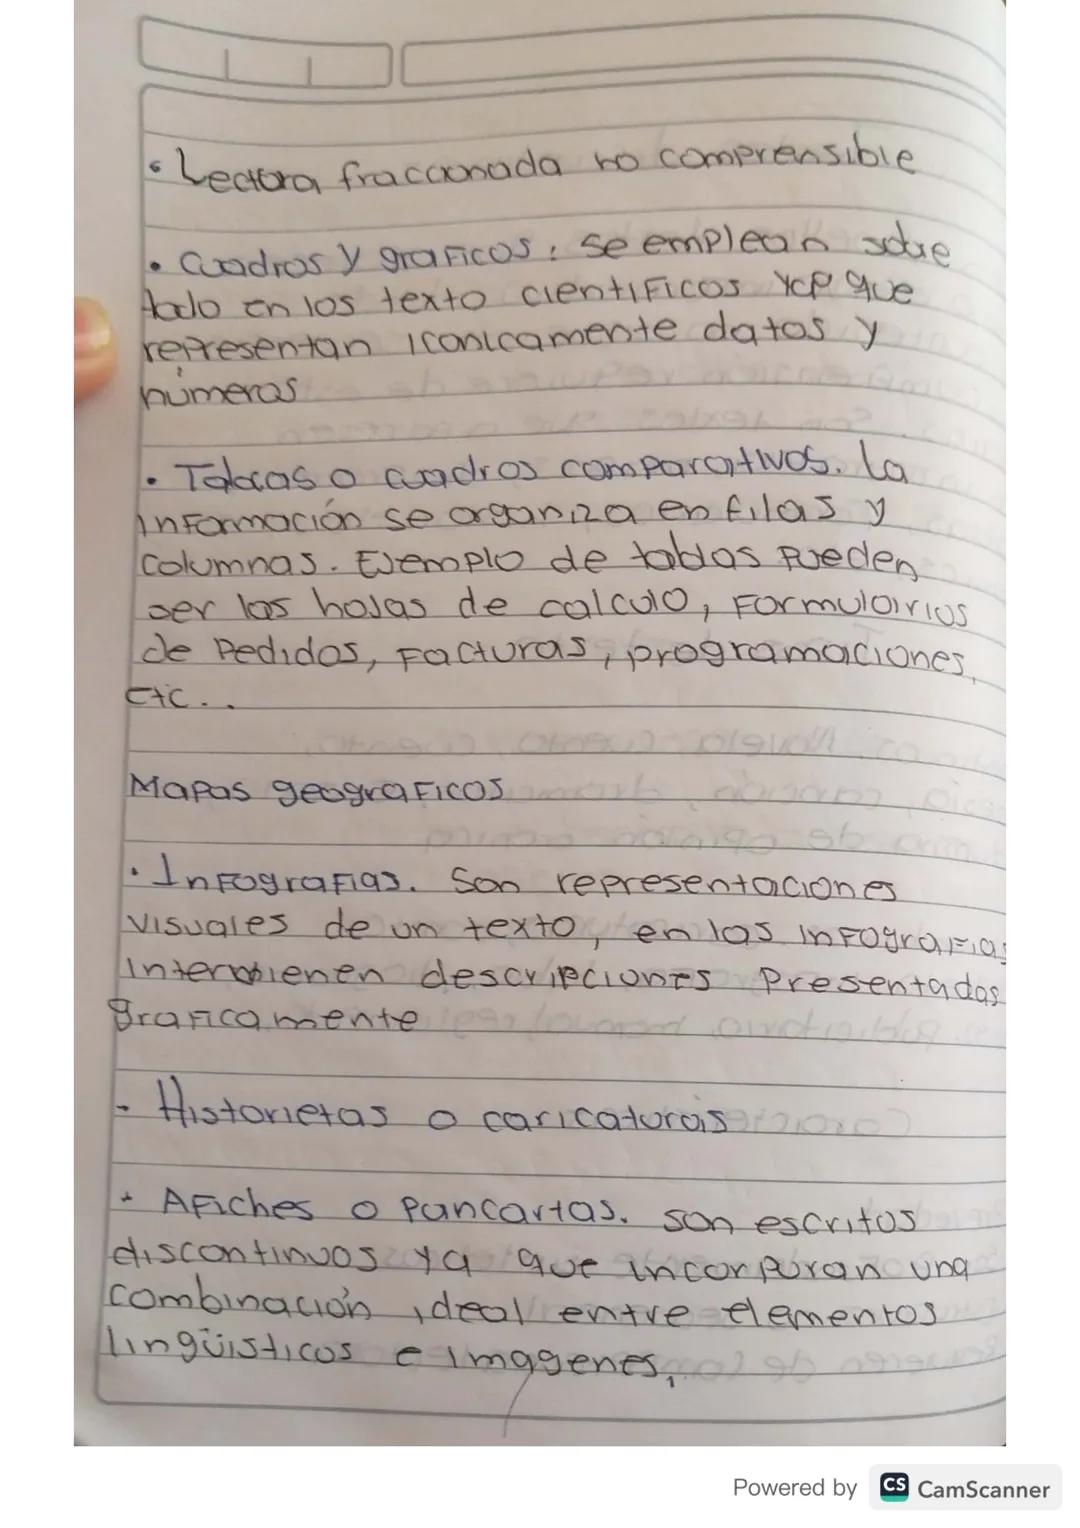 • Lectora fraccionada no comprensible
• Cuadros y graficos: se emplean sobre
todo en los texto cientificos ya que
representan iconicamente datos y
números
• Tablas o cuadros comparativos. la
información se organiza en filas y
columnas. Ejemplo de tablas pueden
ser las hojas de calculo, formularios
de Pedidos, Facturas, programaciones,
Etc..
Mapas geograficos
• Infografias. Son representaciones
visuales de un texto, en las infografias
intervienen descripciones Presentadas
graficamente
- Historietas o caricaturas
+ Afiches o Pancartas. son escritos
discontinuos ya que incorpuran una
combinación ideal entre elementos
lingüisticos e imagenes,
Powered by CS CamScanner